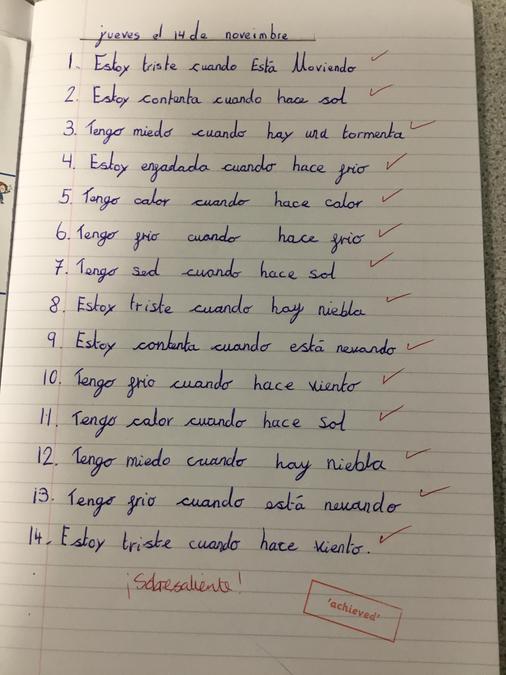 jueves el 14 de noveimbre
1. Estoy triste cuando Está lloviendo
2. Estoy contenta cuando hace sol
3. Tengo miedo cuando hay una tormenta
4. Estoy enfadada cuando hace frio
5. Tengo calor cuando hace calor
6. Tengo frio cuando hace frio
7. Tengo sed cuando hace sol
8. Estoy triste cuando hay niebla
9. Estoy contenta cuando está nevando
10. Tengo frio cuando hace viento
11. Tengo calor cuando hace sol
12. Tengo miedo cuando hay niebla
13. Tengo frio cuando está nevando
14. Estoy triste cuando hace viento.
¡Sobresaliente!
'achieved'